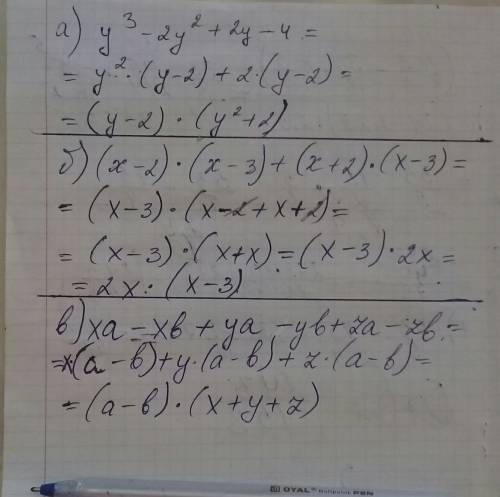 а) y³ - 2y² + 2y - 4 =
= y² · (y-2) + 2 · (y-2) =
= (y-2) · (y²+2)
б) (x-2) · (x-3) + (x+2) · (x-3) =
= (x-3) · (x-2+x+2) =
= (x-3) · (x+x) = (x-3) · 2x =
= 2x · (x-3)
в) xa - xb + ya - yb + za - zb =
= x(a-b) + y · (a-b) + z · (a-b) =
= (a-b) · (x+y+z)
OYAL Ballpoint PEN